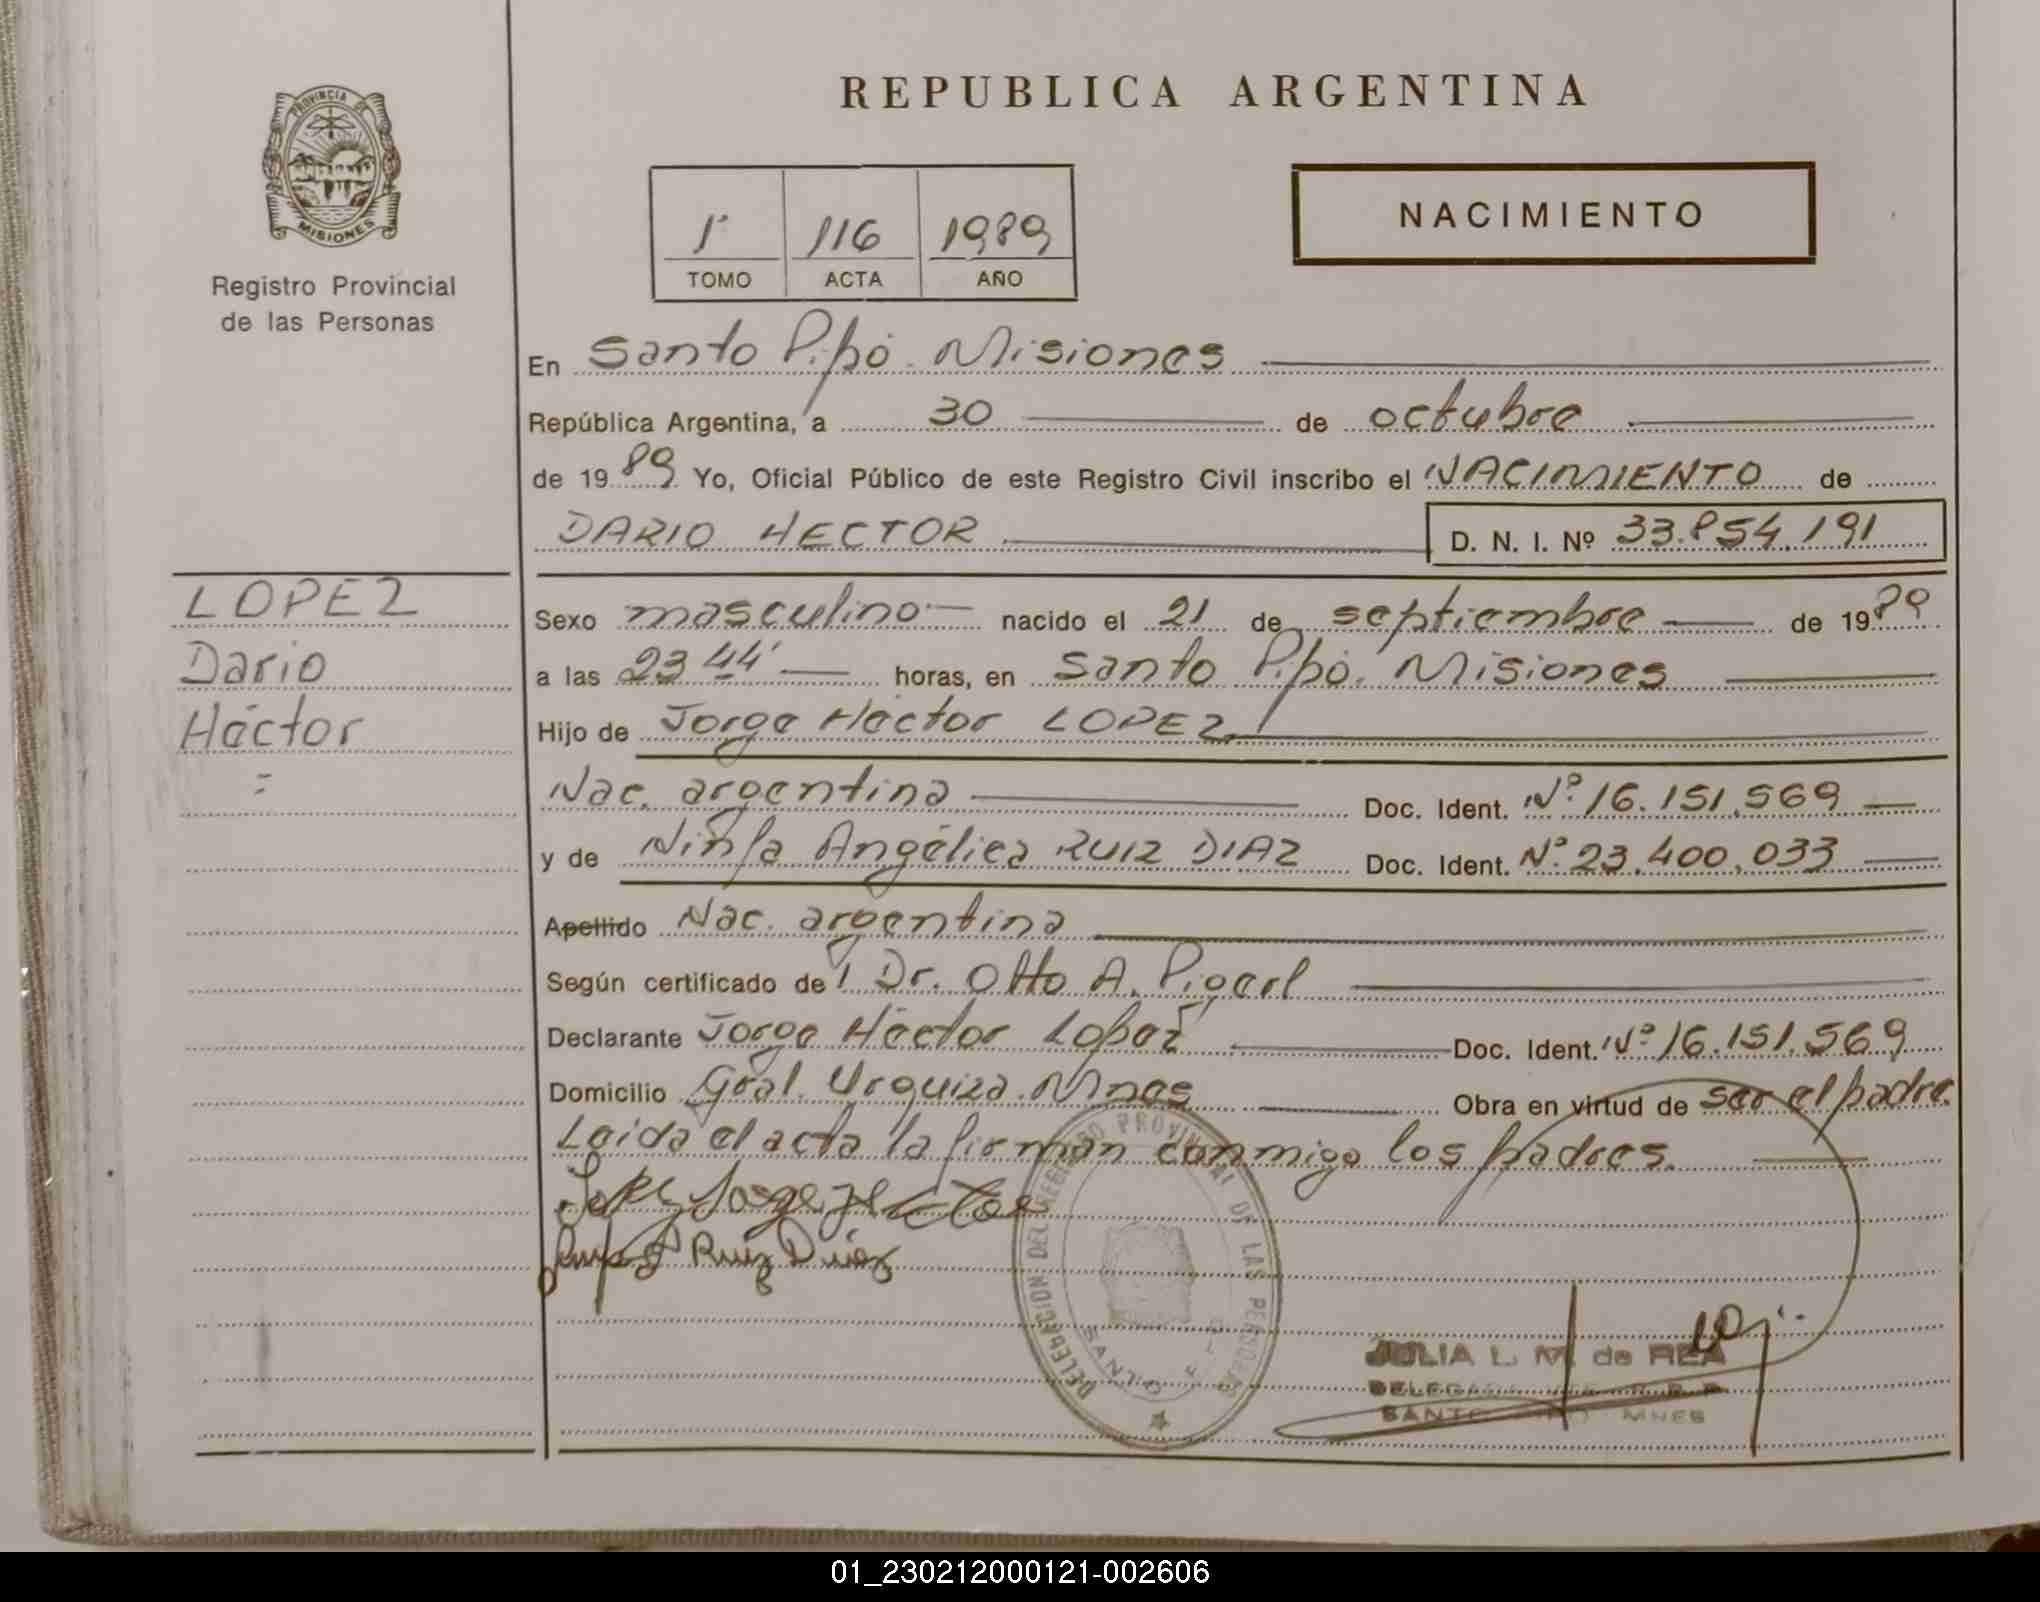 REPUBLICA ARGENTINA
PROVINCIA DE MISIONES
Registro Provincial
de las Personas
1º 116 1989
TOMO ACTA AÑO
NACIMIENTO
En Santo Pipó. Misiones
República Argentina, a 30 de octubre
de 1989 Yo, Oficial Público de este Registro Civil inscribo el NACIMIENTO de
DARIO HECTOR D. N. I. Nº 33.854.191
LOPEZ
Dario
Héctor
Sexo masculino nacido el 21 de septiembre de 1989
a las 23 44' horas, en Santo Pipó. Misiones
Hijo de Jorge Héctor LOPEZ
Nac. argentina Doc. Ident. Nº 16.151.569
y de Ninfa Angélica RUIZ DIAZ Doc. Ident. Nº 23.400.033
Apellido Nac. argentina
Según certificado del Dr. Otto A.
Declarante Jorge Héctor Lopez Doc. Ident. Nº 16.151.569
Domicilio Gral. Urquiza. Mnes Obra en virtud de ser el padre.
Leída el acta la firman conmigo los padres.
Lopez Jorge Hector
Ruiz Diaz
DELEGACION DEL REGISTRO PROVINCIAL DE LAS PERSONAS
SANTO PIPO
JULIA L. M. de REA
DELEGADA R. P. P.
SANTO PIPO - MNES
01_230212000121-002606